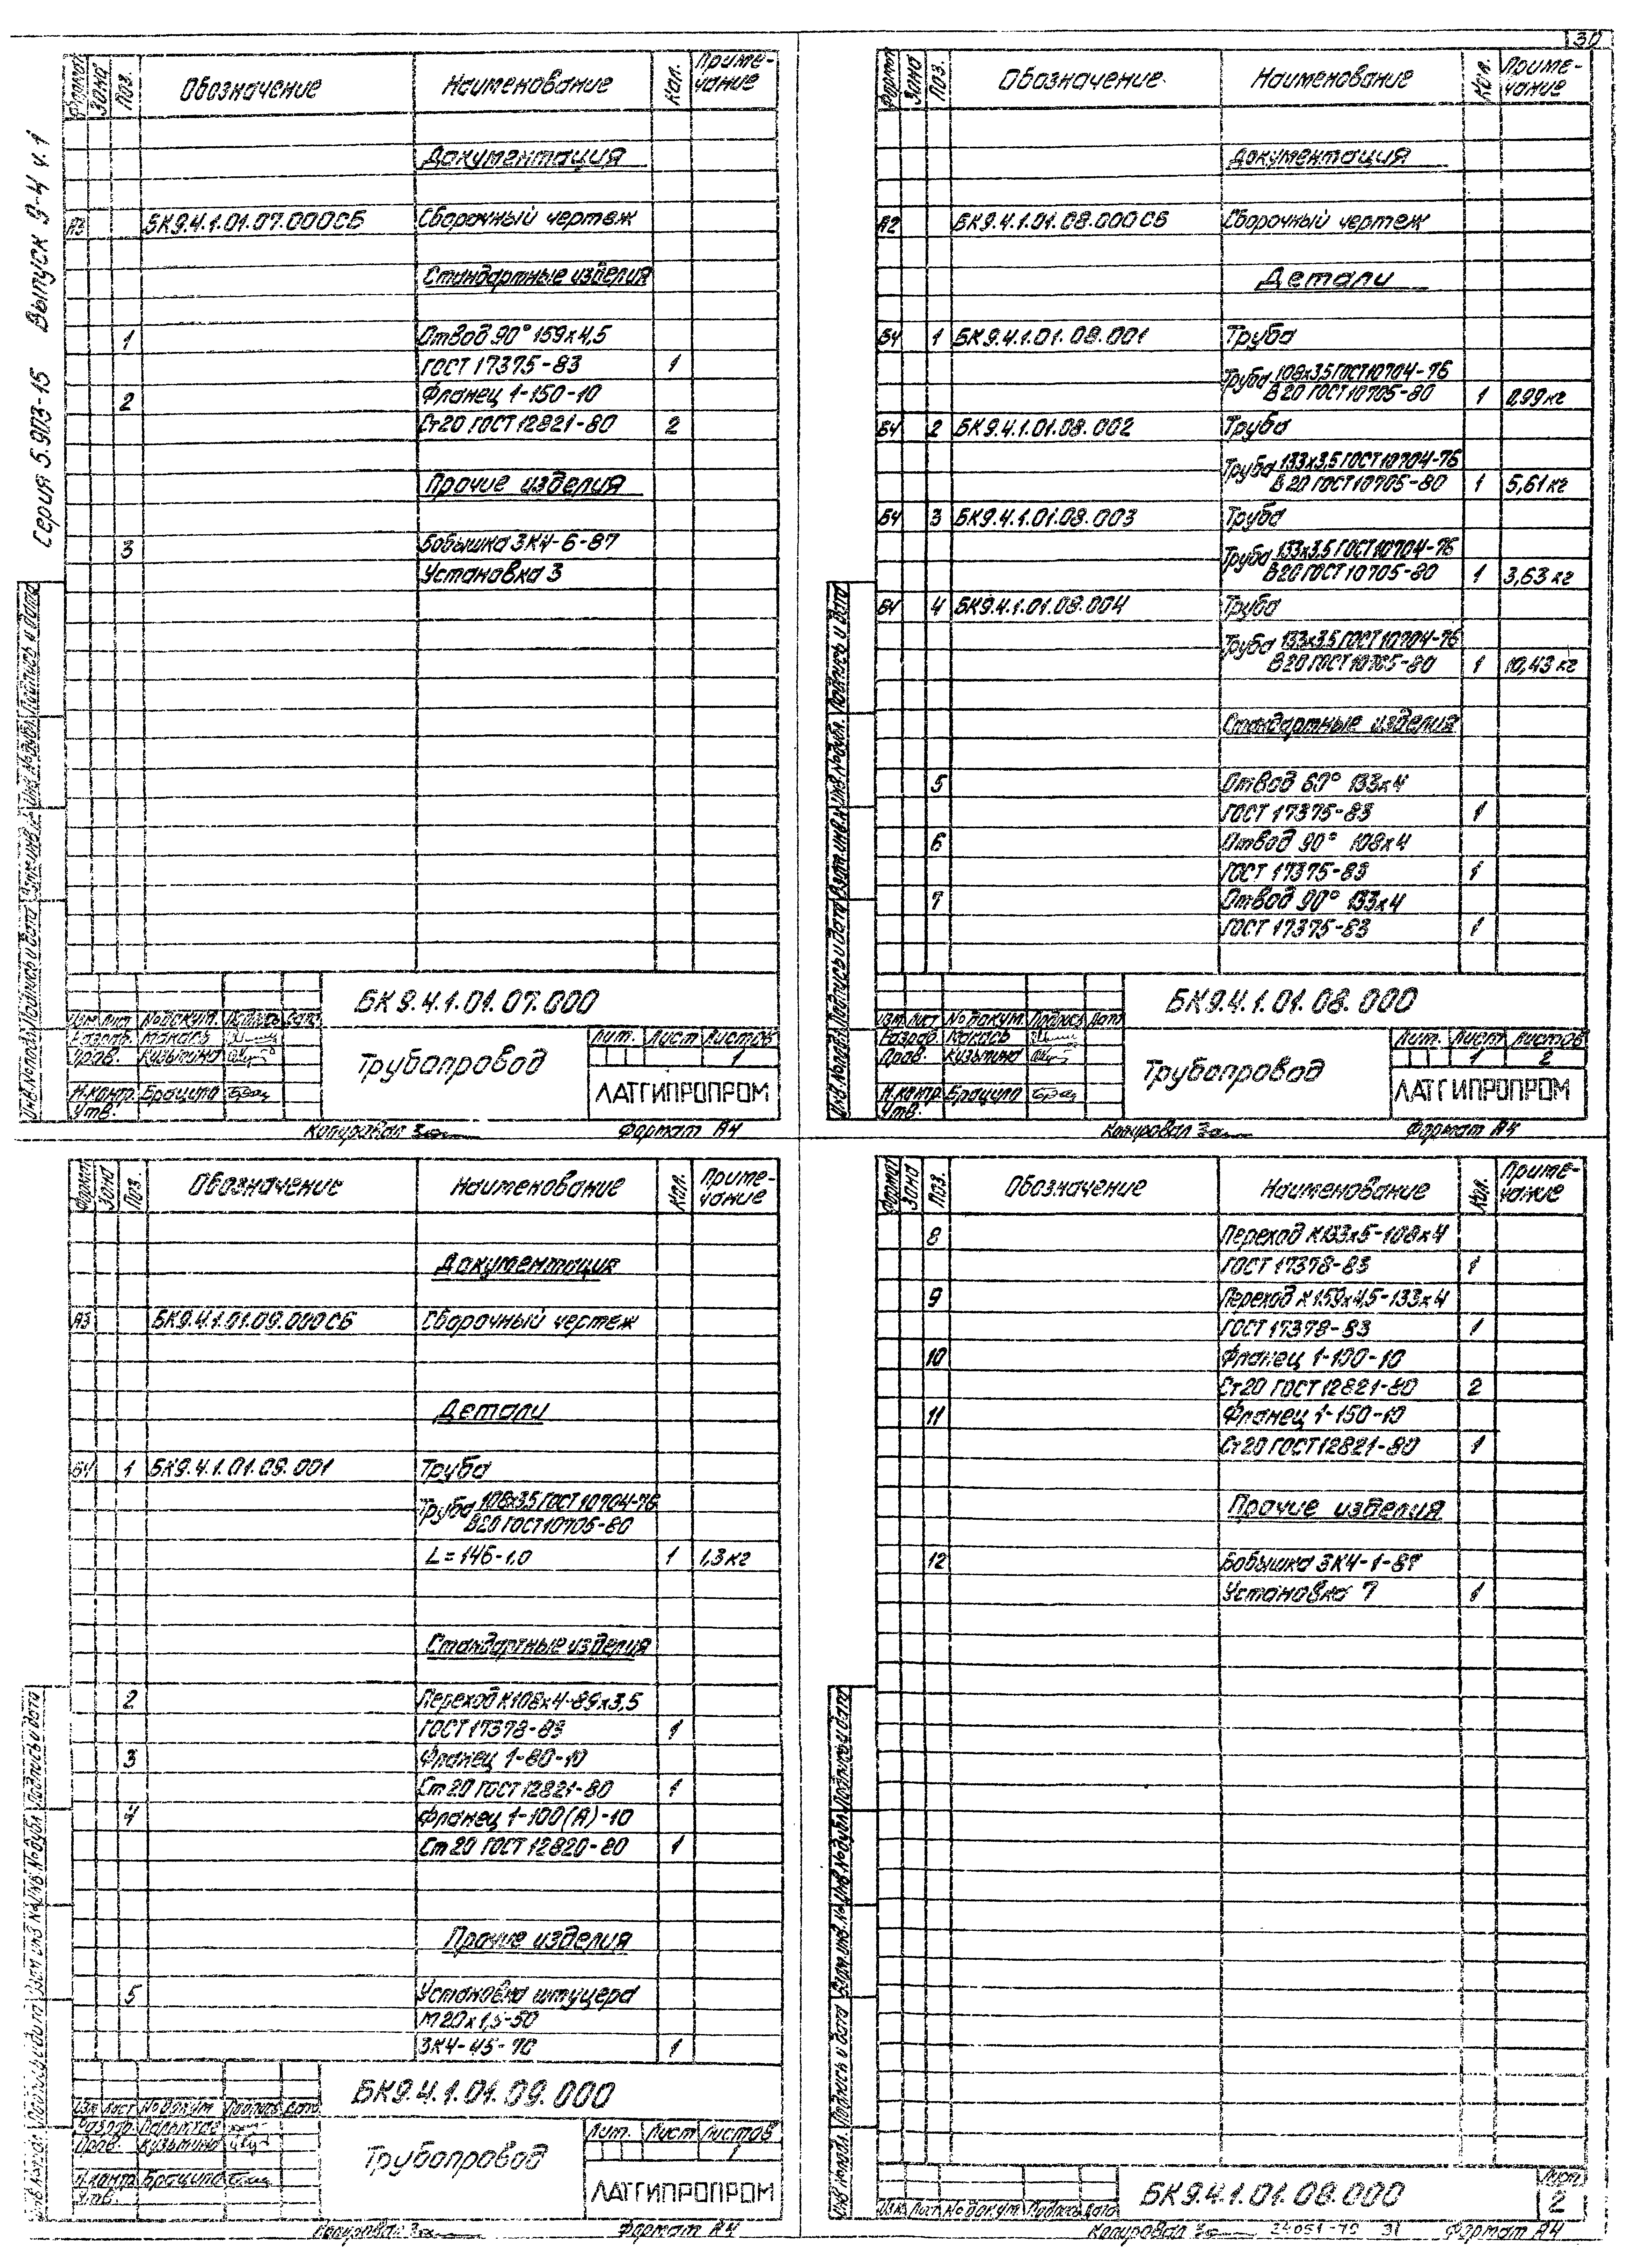 30
Серия 5.903-15 Выпуск 9-4 ч.1
Формат Зона Поз. Обозначение Наименование Кол. Примечание
Документация
А3 БК9.4.1.01.07.000СБ Сборочный чертеж
Стандартные изделия
1 Отвод 90° 159х4,5
ГОСТ 17375-83 1
2 Фланец 1-150-10
Ст20 ГОСТ 12821-80 2
Прочие изделия
3 Бобышка ЗК4-6-87
Установка 3
Инв.№подл. Подпись и дата Взам.инв.№ Инв.№дубл. Подпись и дата
БК9.4.1.01.07.000
Изм Лист №докум. Подпись Дата
Разраб.
Пров. Кузьмина
Н.контр. Брацило
Утв.
Трубопровод
Лит. Лист Листов
1
ЛАТГИПРОПРОМ
Копировал Формат А4
Формат Зона Поз. Обозначение Наименование Кол. Примечание
Документация
А2 БК9.4.1.01.08.000СБ Сборочный чертеж
Детали
Б4 1 БК9.4.1.01.08.001 Труба
Труба 108х3,5 ГОСТ 10704-76
В20 ГОСТ 10705-80 1 0,99 кг
Б4 2 БК9.4.1.01.08.002 Труба
Труба 133х3,5 ГОСТ 10704-76
В20 ГОСТ 10705-80 1 5,61 кг
Б4 3 БК9.4.1.01.08.003 Труба
Труба 133х3,5 ГОСТ 10704-76
В20 ГОСТ 10705-80 1 3,63 кг
Б4 4 БК9.4.1.01.08.004 Труба
Труба 133х3,5 ГОСТ 10704-76
В20 ГОСТ 10705-80 1 10,43 кг
Стандартные изделия
5 Отвод 60° 133х4
ГОСТ 17375-83 1
6 Отвод 90° 108х4
ГОСТ 17375-83 1
7 Отвод 90° 133х4
ГОСТ 17375-83 1
Инв.№подл. Подпись и дата Взам.инв.№ Инв.№дубл. Подпись и дата
БК9.4.1.01.08.000
Изм Лист №докум. Подпись Дата
Разраб.
Пров. Кузьмина
Н.контр. Брацило
Утв.
Трубопровод
Лит. Лист Листов
1 2
ЛАТГИПРОПРОМ
Копировал Формат А4
Формат Зона Поз. Обозначение Наименование Кол. Примечание
Документация
А3 БК9.4.1.01.09.000СБ Сборочный чертеж
Детали
Б4 1 БК9.4.1.01.09.001 Труба
Труба 108х3,5 ГОСТ 10704-76
В20 ГОСТ 10705-80
L=146-1,0 1 1,3 кг
Стандартные изделия
2 Переход К108х4-89х3,5
ГОСТ 17378-83 1
3 Фланец 1-80-10
Ст20 ГОСТ 12821-80 1
4 Фланец 1-100(А)-10
Ст20 ГОСТ 12820-80 1
Прочие изделия
5 Установка штуцера
М20х1,5-50
ЗК4-45-70 1
Инв.№подл. Подпись и дата Взам.инв.№ Инв.№дубл. Подпись и дата
БК9.4.1.01.09.000
Изм Лист №докум. Подпись Дата
Разраб.
Пров. Кузьмина
Н.контр. Брацило
Утв.
Трубопровод
Лит. Лист Листов
1
ЛАТГИПРОПРОМ
Копировал Формат А4
Формат Зона Поз. Обозначение Наименование Кол. Примечание
8 Переход К133х5-108х4
ГОСТ 17378-83 1
9 Переход К159х4,5-133х4
ГОСТ 17378-83 1
10 Фланец 1-100-10
Ст20 ГОСТ 12821-80 2
11 Фланец 1-150-10
Ст20 ГОСТ 12821-80 1
Прочие изделия
12 Бобышка ЗК4-1-87
Установка 7 1
Инв.№подл. Подпись и дата Взам.инв.№ Инв.№дубл. Подпись и дата
Изм Лист №докум. Подпись Дата
БК9.4.1.01.08.000
Лист
2
Копировал 31 Формат А4